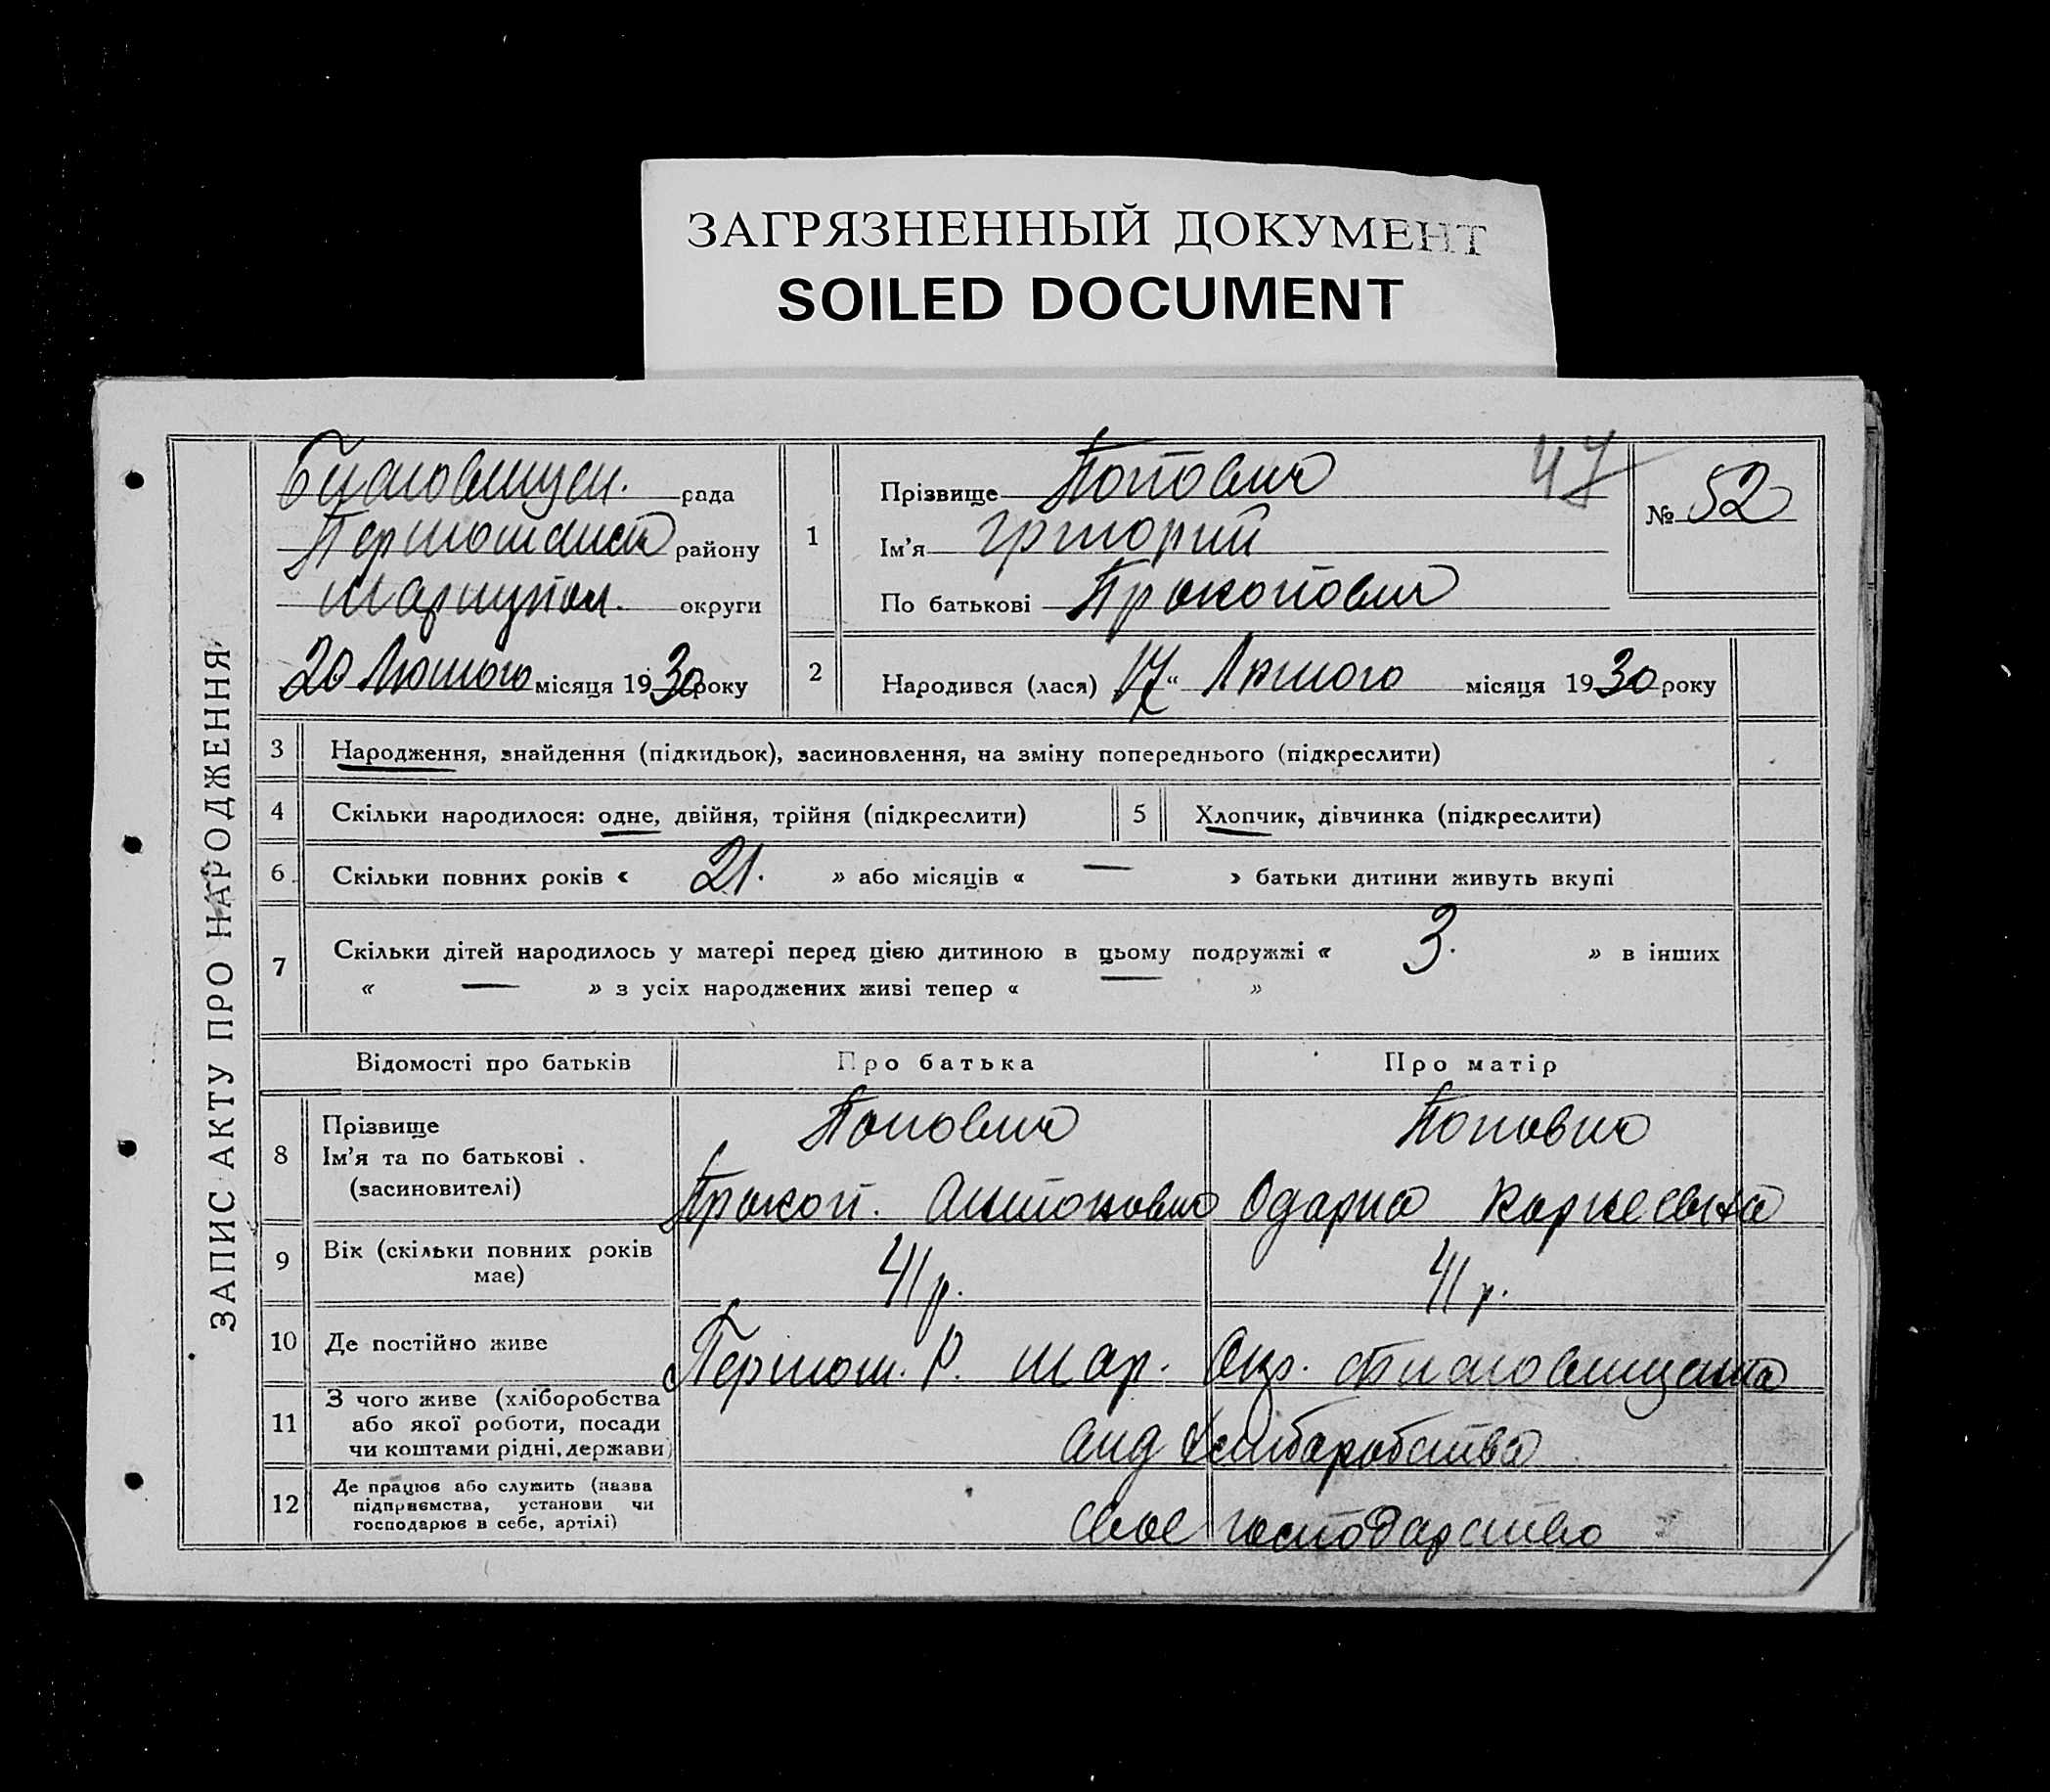 ЗАГРЯЗНЕННЫЙ ДОКУМЕНТ
SOILED DOCUMENT
ЗАПИС АКТУ ПРО НАРОДЖЕННЯ
рада
району
округи
20 Лютого місяця 1930 року
1
Прізвище Попович
Ім'я Григорий
По батькові Прокопович
47
№ 52
2
Народився (лася) 17 “ Лютого місяця 1930 року
3 Народження, знайдення (підкидьок), засиновлення, на зміну попереднього (підкреслити)
4 Скільки народилося: одне, двійня, трійня (підкреслити)
5 Хлопчик, дівчинка (підкреслити)
6 Скільки повних років « 21. » або місяців « — » батьки дитини живуть вкупі
7 Скільки дітей народилось у матері перед цією дитиною в цьому подружжі « 3. » в інших
« — » з усіх народжених живі тепер « »
Відомості про батьків Про батька Про матір
8
Прізвище
Ім'я та по батькові .
(засиновителі)
Попович
Прокоп. Антонович
Попович
Одарка
9
Вік (скільки повних років
має)
41 р.
41 р.
10 Де постійно живе
Мар. Окр.
11
З чого живе (хліборобства
або якої роботи, посади
чи коштами рідні, держави)
12
Де працює або служить (назва
підприємства, установи чи
господарює в себе, артілі)
Свое господарство